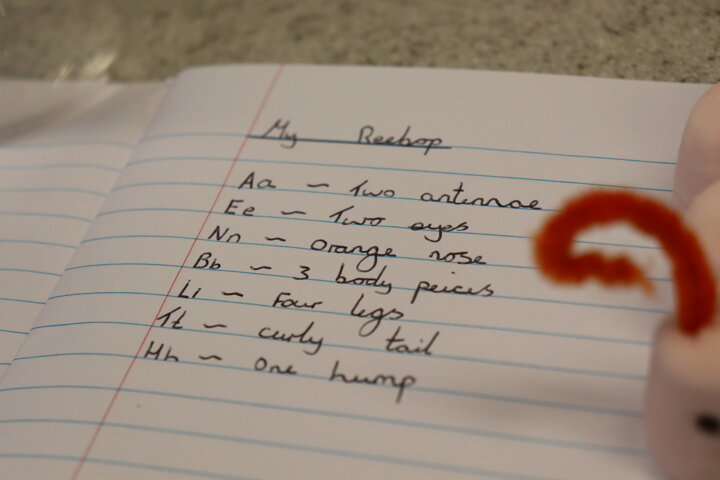 My Reebop
Aa - Two antennae
Ee - Two eyes
Nn - Orange nose
Bb - 3 body peices
Ll - Four legs
Tt - curly tail
Hh - One hump